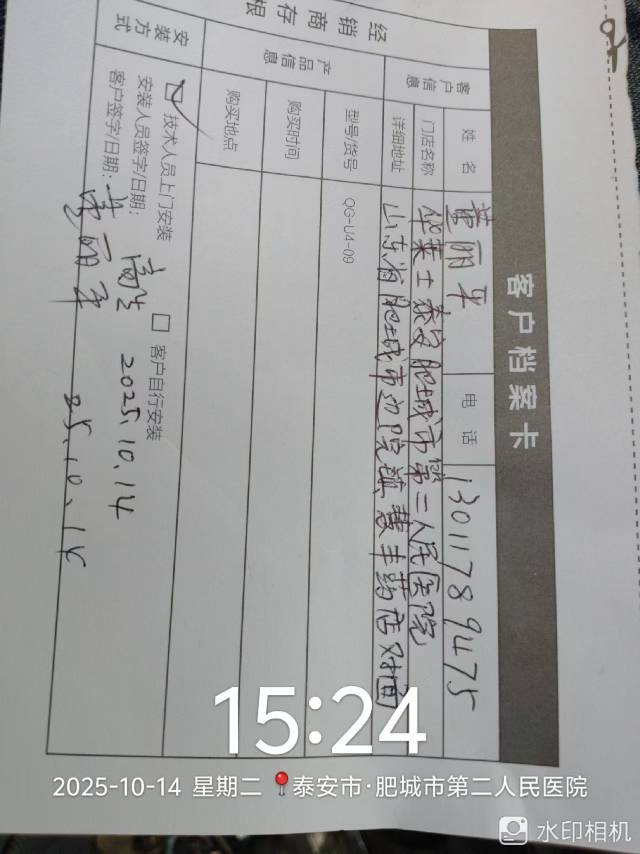 客户档案卡
经销商存根
客户信息
姓名 董丽平 电话 13011789475
门店名称 华莱士泰安肥城市第二人民医院
详细地址 山东省肥城市边院镇 丰药店对面
产品信息
型号/货号 QG-U4-09
购买时间
购买地点
安装方式
☑ 技术人员上门安装 ☐ 客户自行安装
安装人员签字/日期: 2025.10.14
客户签字/日期: 董丽平 25.10.14
15:24
2025-10-14 星期二 泰安市·肥城市第二人民医院
水印相机